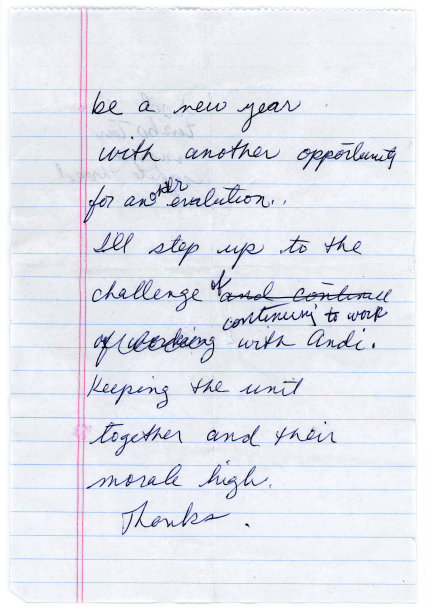 be a new year
with another opportunity
for another evalution..
I'll step up to the
challenge of and continue
continuing to work
of working with Andi.
Keeping the unit
together and their
morale high.
Thanks.